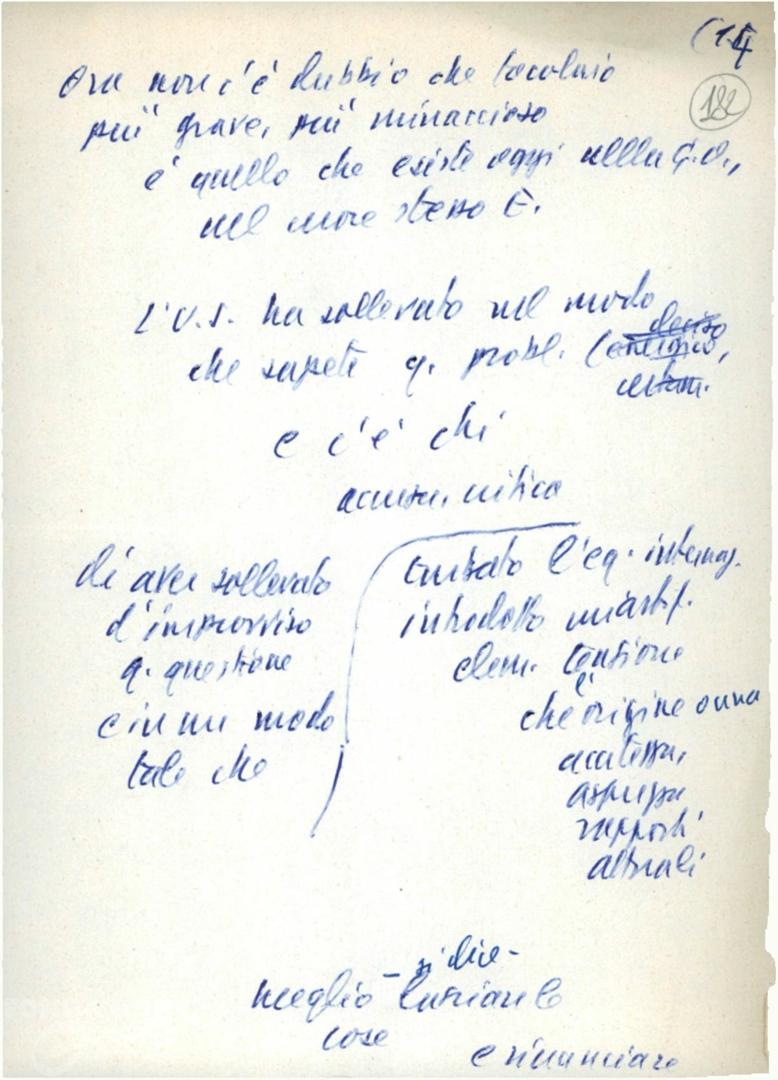 (14
182
Ora non c'è dubbio che focolaio
più grave, più minaccioso
è quello che esiste oggi nella G.O.,
nel cuore stesso E.
L'U.S. ha sollevato nel modo
che sapete q. probl. (energico, deciso
e c'è chi
accusa, critica
di aver sollevato
d'improvviso
q. questione
e in un modo
tale che
turbato l'eq. internaz.
introdotto un artif.
elem. tensione
che è origine o una
accatessa,
asprezza
rapporti
attuali
– si dice –
meglio lasciare le
cose
e rinunciare